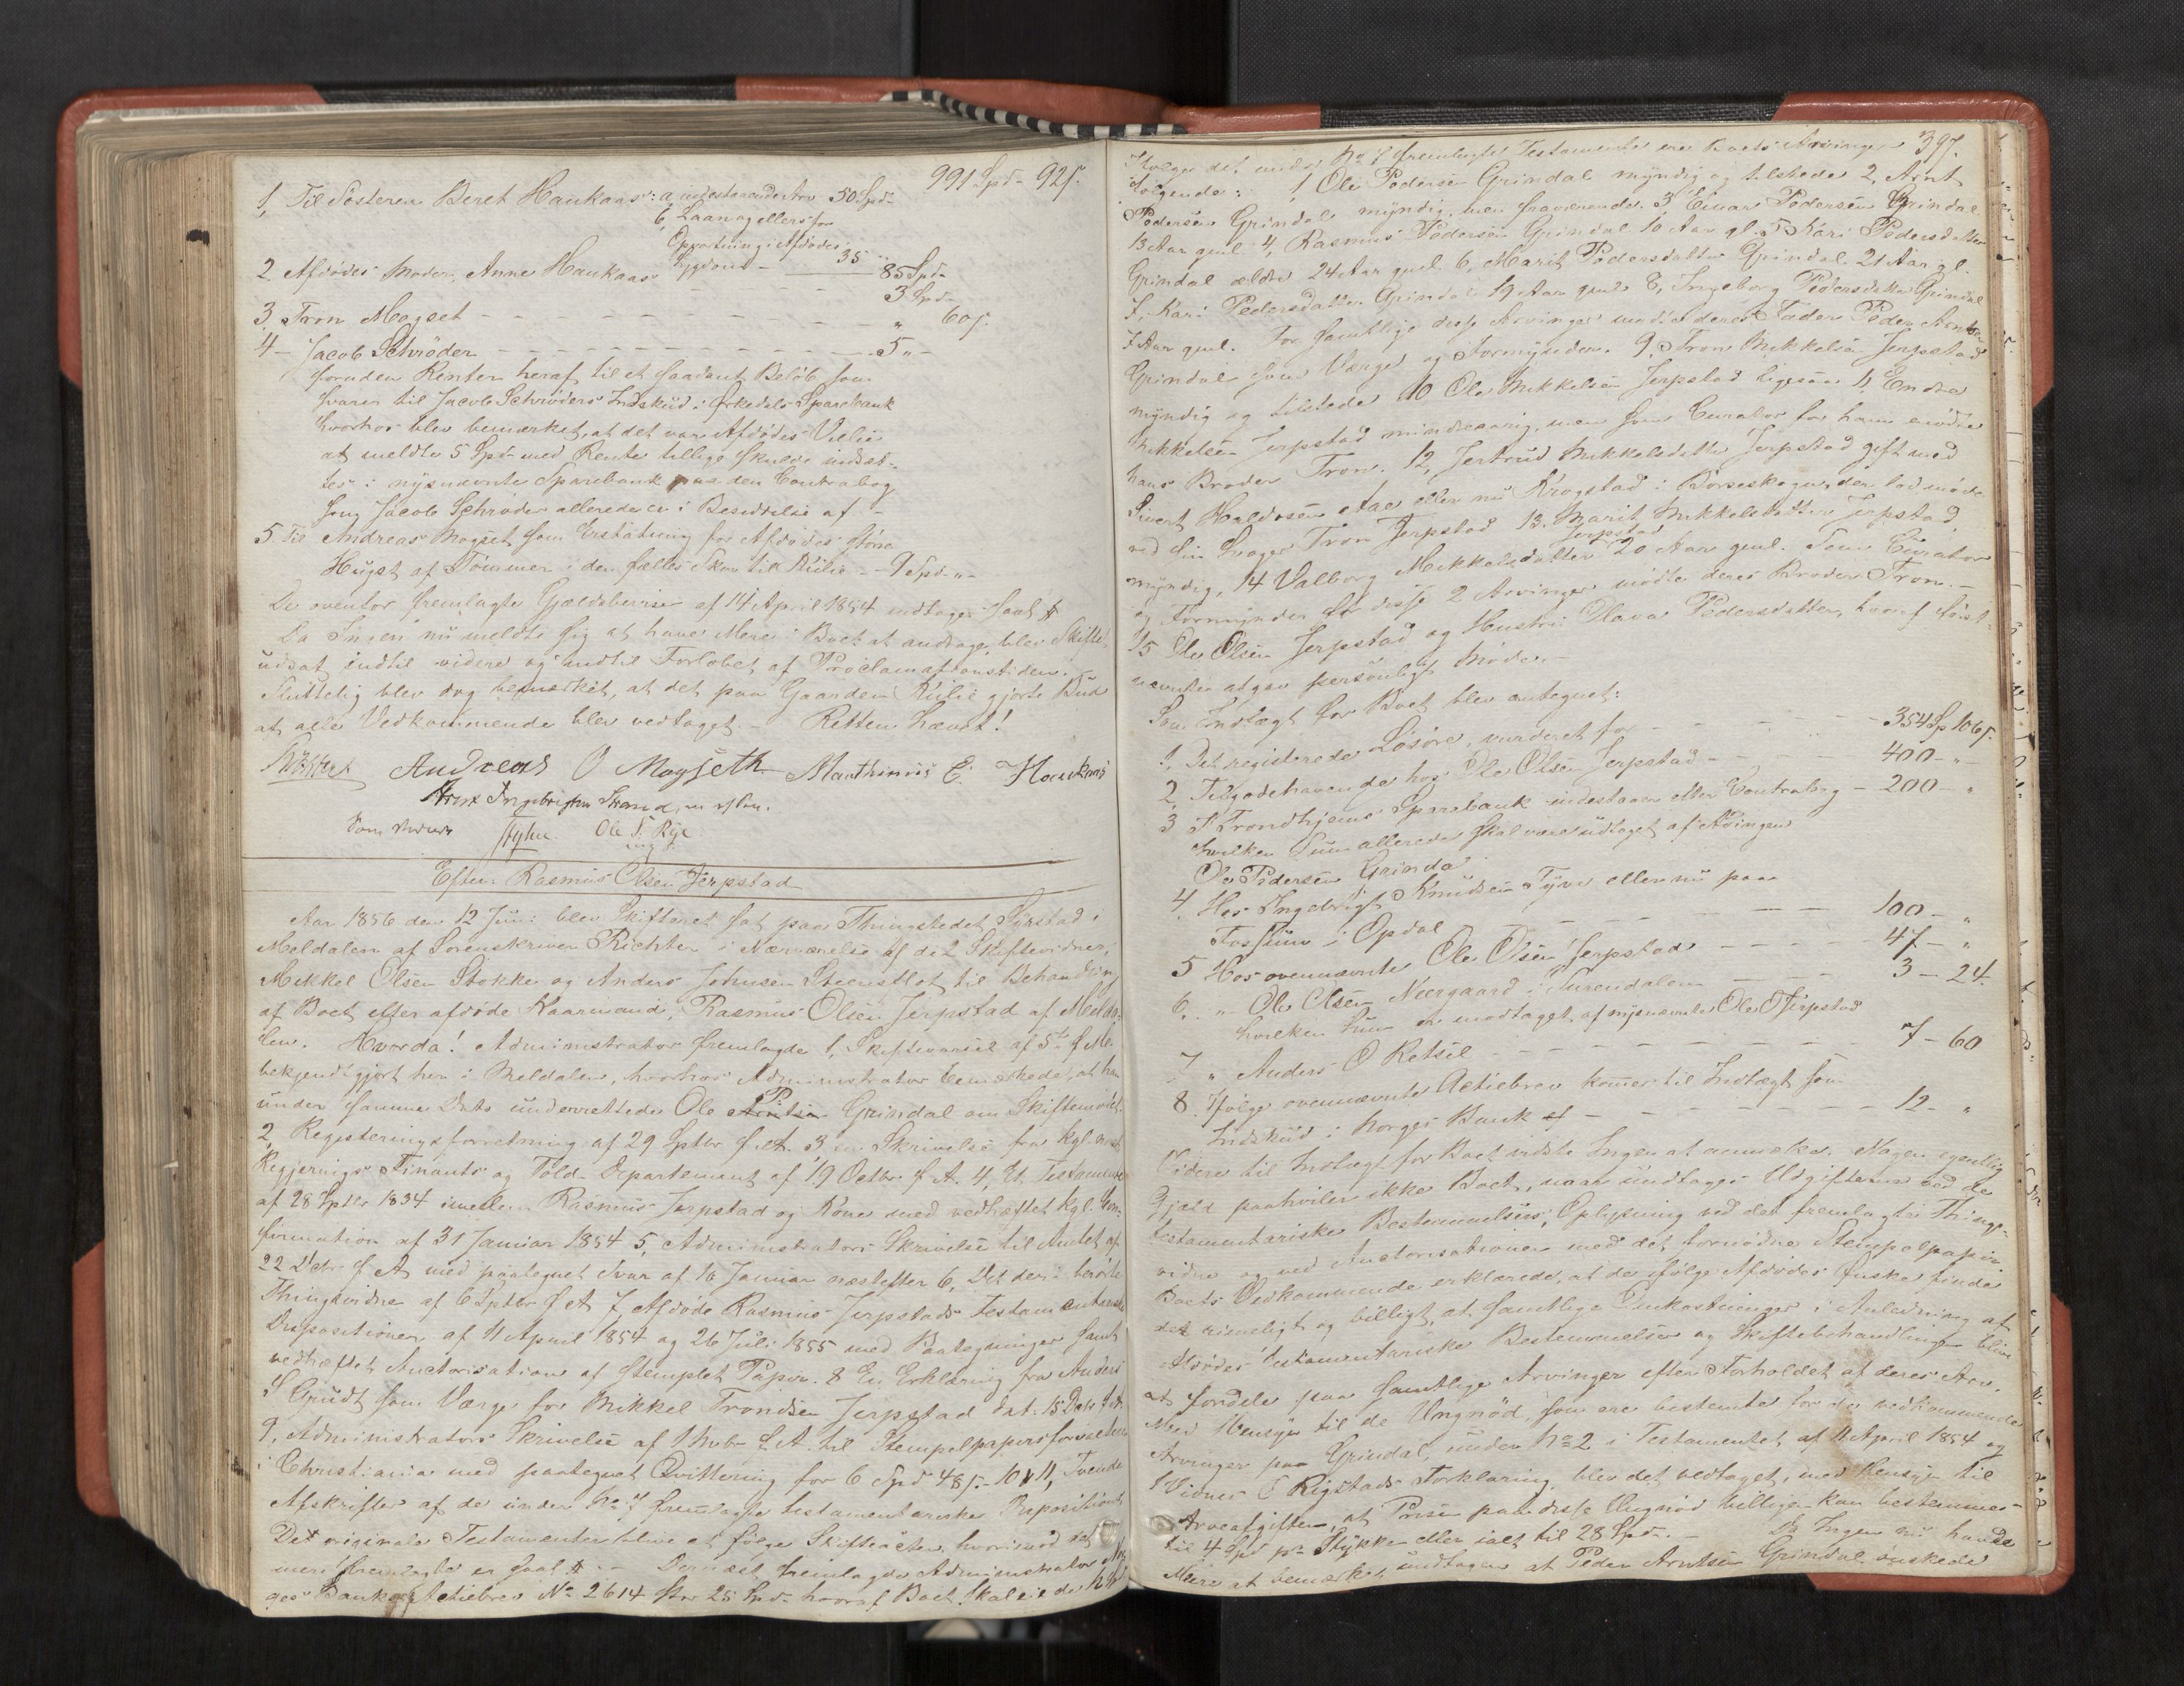 991 Spd - 92 s.
1, Til Søsteren Beret Haukaas: a, indestaaende Arv 50 Spd -
b, Laan og ellers for
Oppartning i Afdødes
Sygdom - 35 " 85 Spd -
2 Afdødes Moder, Anne Haukaas - - - 3 Spd -
3, Tron Magset - - - - - - " 60 s.
4 - Jacob Schrøder - - - - - - 5 " -
foruden Renten heraf til et saadant Beløb som
svarer til Jacob Schrøders Indskud i Orkedals Sparebank
hvorhos blev bemærket, at det var Afdødes Villie
at meldte 5 Spd med Rente tillige skulde indsæt-
tes i nysnævnte Sparebank paa den Contrabog
som Jacob Schrøder allerede er i Besiddelse af -
5 Til Andreas Magset som Erstatning for Afdødes større
Hugst af Tømmer i den fælles Skov til Rulie - - 9 Spd - " -
De ovenfor fremlagte Gjeldsbeviser af 14 April 1854 indtages saal #
Da Ingen nu meldte sig at have Mere i Boet at andrage, blev Skiftet
udsat indtil videre og indtil Forløbet af Proclamationstiden.
Sluttelig blev dog bemærket, at det paa Gaarden Rulie gjorte Bud
at alle Vedkommende blev vedtaget. - Retten hævet!
Richter Andreas O Magseth Marthinus E. Haukaas
Arnt Ingebrigtsen Strand, m. f. Pen.
Som Vidner Ole T. Rye
Efter Rasmus Olsen Jerpstad
Aar 1856 den 12 Juni blev Skifteret sat paa Thingstedet Syrstad i
Meldalen af Sorenskriver Richter i Nærværelse af de 2 Skiftevidner,
Mikkel Olsen Stokke og Anders Johnsen Steensflot til Behandling
af Boet efter afdøde Kaarmand, Rasmus Olsen Jerpstad af Melda-
len. Hvorda! Administrator fremlagde 1, Skiftevarsel af 5te f. M.
bekjendtgjort her i Meldalen, hvorhos Administrator bemærkede, at han
under samme Dato underrettede Ole P. Grindal om Skiftemødet.
2, Registeringsforretning af 29 Sptbr f. A. 3, en Skrivelse fra Kgl. norsk
Regjerings Finants og Told-Departement af 19 Octbr f. A. 4, Et Testamente
af 28 Sptbr 1834 imellem Rasmus Jerpstad og Kone med vedhæftet Kgl. Con-
firmation af 31 Januar 1854 5, Administrators Skrivelse til Amtet af
22 Dcbr f. A med paategnet Svar af 16 Januar næstefter 6, Det deri berørte
Thingsvidne af 6 Sptbr f A 7, Afdøde Rasmus Jerpstads Testamentariske
Dispositioner af 11 April 1854 og 26 Juli 1855 med Paategninger samt
vedhæftet Auctorisation af stemplet Papir. 8 En Erklæring fra Anders
S Grudt som Værge for Mikkel Trondsen Jerpstad dat. 15 Dcbr f. A.
9, Administrators Skrivelse af 1 Nvbr f. A. til Stempelpapirsforvalteren
i Christiania med paategnet Qvittering for 6 Spd 48 s. - 10 & 11, Tvende
Afskrifter af de under No 7 fremlagte testamentariske Dispositioner
Det originale Testamenter blive at følge Skifteacten hvorimod det
mere fremlagte er saal # - - Dernæst fremlagde Administrator Nor-
ges Banks Actiebrev No 2614 stor 25 Spd - hvoraf Boet skal eie de
397.
Ifølge det under No 7 fremlagte Testamente ere Boets Arvinger
følgende: 1, Ole Pedersen Grindal myndig og tilstede 2, Arnt
Pedersen Grindal myndig, men fraværende. 3, Einar Pedersen Grindal
13 Aar gml. 4, Rasmus Pedersen Grindal 10 Aar gl. 5 Kari Pedersdatter
Grindal ældre 24 Aar gml. 6, Marit Pedersdatter Grindal 21 Aar gl.
7, Kari Pedersdatter Grindal 19 Aar gml 8, Ingeborg Pedersdatter Grindal
7 Aar gml. For samtlige disse Arvinger mødte deres Fader Peder Arntsen
Grindal som Værge og Formynder. 9, Tron Mikkelsen Jerpstad
myndig og tilstede 10 Ole Mikkelsen Jerpstad ligesaa 11, Endre
Mikkelsen Jerpstad mindreaarig, men som Curator for ham mødte
hans Broder Tron. 12, Jertrud Mikkelsdatter Jerpstad gift med
Sivert Haldosen Aae eller nu Krogstad i Børseskogn, der lod møde
ved sin Svoger Tron Jerpstad 13. Marit Mikkelsdatter Jerpstad,
myndig, 14 Valborg Mikkelsdatter Jerpstad 20 Aar gml. Som Curator
og Formynder for disse 2 Arvinger mødte deres Broder Tron. -
15 Ole Olsen Jerpstad og Hustru Olava Pedersdatter, hvoraf først-
nævnte afgav personligt Møde. -
Som Indtægt for Boet blev antegnet:
1, Det registerede Løsøre, vurderet for - - - 354 Sp 106 s.
2, Tilgodehavende hos Ole Olsen Jerpstad - - - 400 - " -
3 I Trondhjems Sparebank indestaaer efter Contrabog - 200 - "
hvilken Sum allerede skal være udtaget af Arvingen
Ole Pedersen Grindal
4. Hos Ingebrigt Knudsen Tyve eller nu paa
Fossum i Opdal - - - - - 100 - "
5 Hos ovennævnte Ole Olsen Jerpstad - - - 47 - "
6. " Ole Olsen Neergaard i Surendalen - - - 3 - 24.
hvilken Sum er modtaget af nysnævnte Ole O Jerpstad
7 " Anders O Retsel - - - - - 7 - 60
8. Ifølge ovennævnte Actiebrev kommer til Indtægt som
Indskud i Norges Bank - - - - - 12 - "
Videre til Indtægt for Boet vidste Ingen at anmælde. Nogen egentlig
Gjæld paahviler ikke Boet, naar undtages Udgifterne ved de
testamentariske Bestemmelsers Oplysning ved det fremlagte Things-
vidne og ved Auctorisationen med det fornødne Stempelpapir
Boets Vedkommende erklærede, at de ifølge Afdødes Ønske finde
det rimeligt og billigt, at samtlige Omkostninger i Anledning af
Afdødes testamentariske Bestemmelser og Skiftebehandlingen blive
at fordele paa samtlige Arvinger efter Forholdet af deres Arv.
Med Hensyn til de Ungnød, som ere bestemte for de vedkommende
Arvinger paa Grindal, under No 2 i Testamentet af 11 April 1854 og
1 Vidnes E Rigstads Forklaring, blev det vedtaget, med Hensyn til
Arveafgiften, at Prisen paa disse Ungnød billigen kan bestemmes
til 4 Spd pr Stykke eller ialt til 28 Spd. - Da Ingen nu havde
Mere at bemærke, undtagen at Peder Arntsen Grindal ønskede